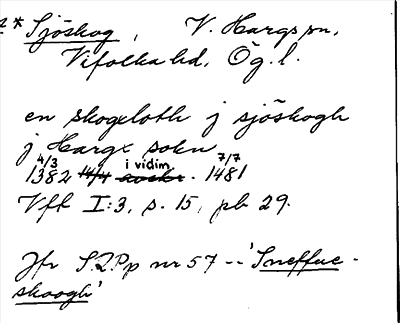 2* Sjöskog, V. Hargs sn,
Vifolka hd, Ög. l.
en skogxloth j sjöskogh
j Hargx sokn
4/3 i vidim. 7/7
1382 14/4 1481
Vfk I:3, s. 15, pb 29.
Jfr SRPp nr 57 -- 'Sneffue-
skoogh'